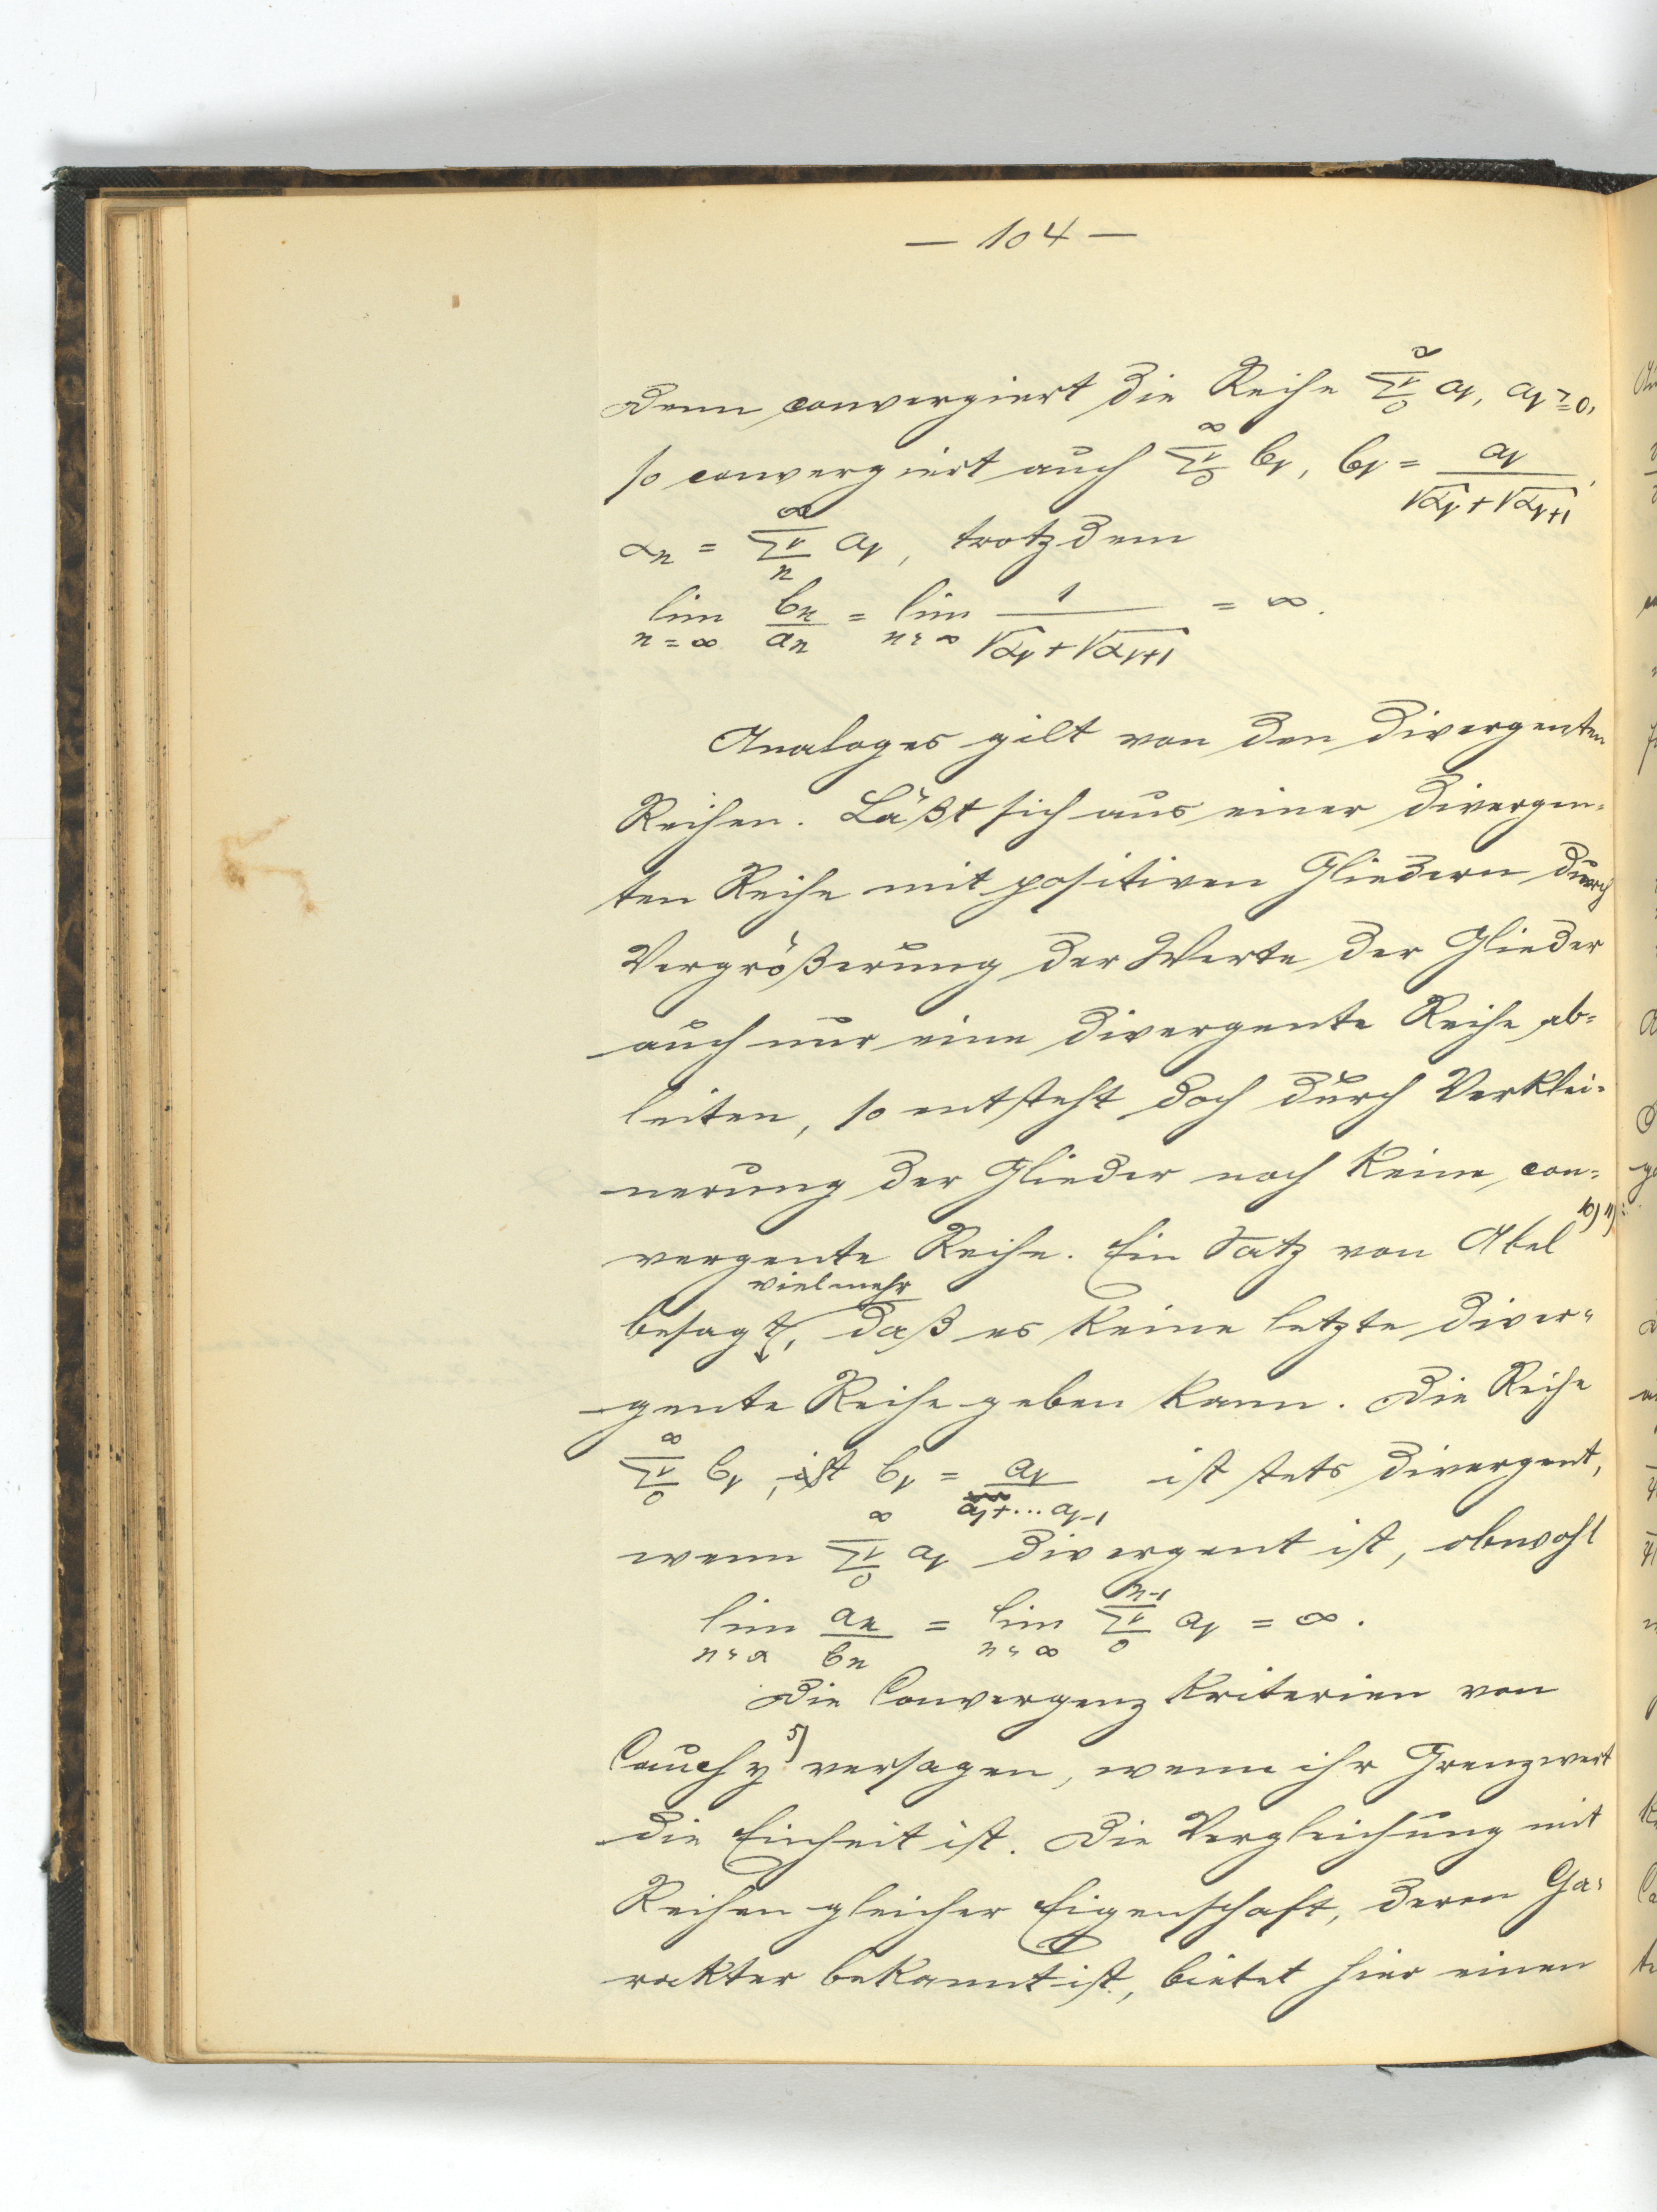 — 104 —
Denn convergiert die Reihe ∞Σν0 aν, aν ≧ 0,
so convergiert auch ∞Σν0 bν, bν = aν / (√αν + √αν+1),
αn = ∞Σνn aν, trotzdem
lim n=∞ bn / an = lim n=∞ 1 / (√αν + √αν+1) = ∞.
Analoges gilt von den divergenten
Reihen. Läßt sich aus einer divergen-
ten Reihe mit positiven Gliedern durch
Vergrößerung der Werte der Glieder
auch nur eine divergente Reihe ab-
leiten, so entsteht doch durch Verklei-
nerung der Glieder noch keine con-
vergente Reihe. Ein Satz von Abel 10) 11)
vielmehr
besagt, daß es keine letzte diver-
gente Reihe geben kann. Die Reihe
∞Σν0 bν, ist bν = aν / (a1+...aν-1) ist stets divergent,
wenn ∞Σν0 aν divergent ist, obwohl
lim n=∞ an / bn = lim n=∞ n-1Σν0 aν = ∞.
Die Convergenzkriterien von
Cauchy 5) versagen, wenn ihr Grenzwert
die Einheit ist. Die Vergleichung mit
Reihen gleicher Eigenschaft, deren Ca-
rakter bekannt ist, bietet hier einen